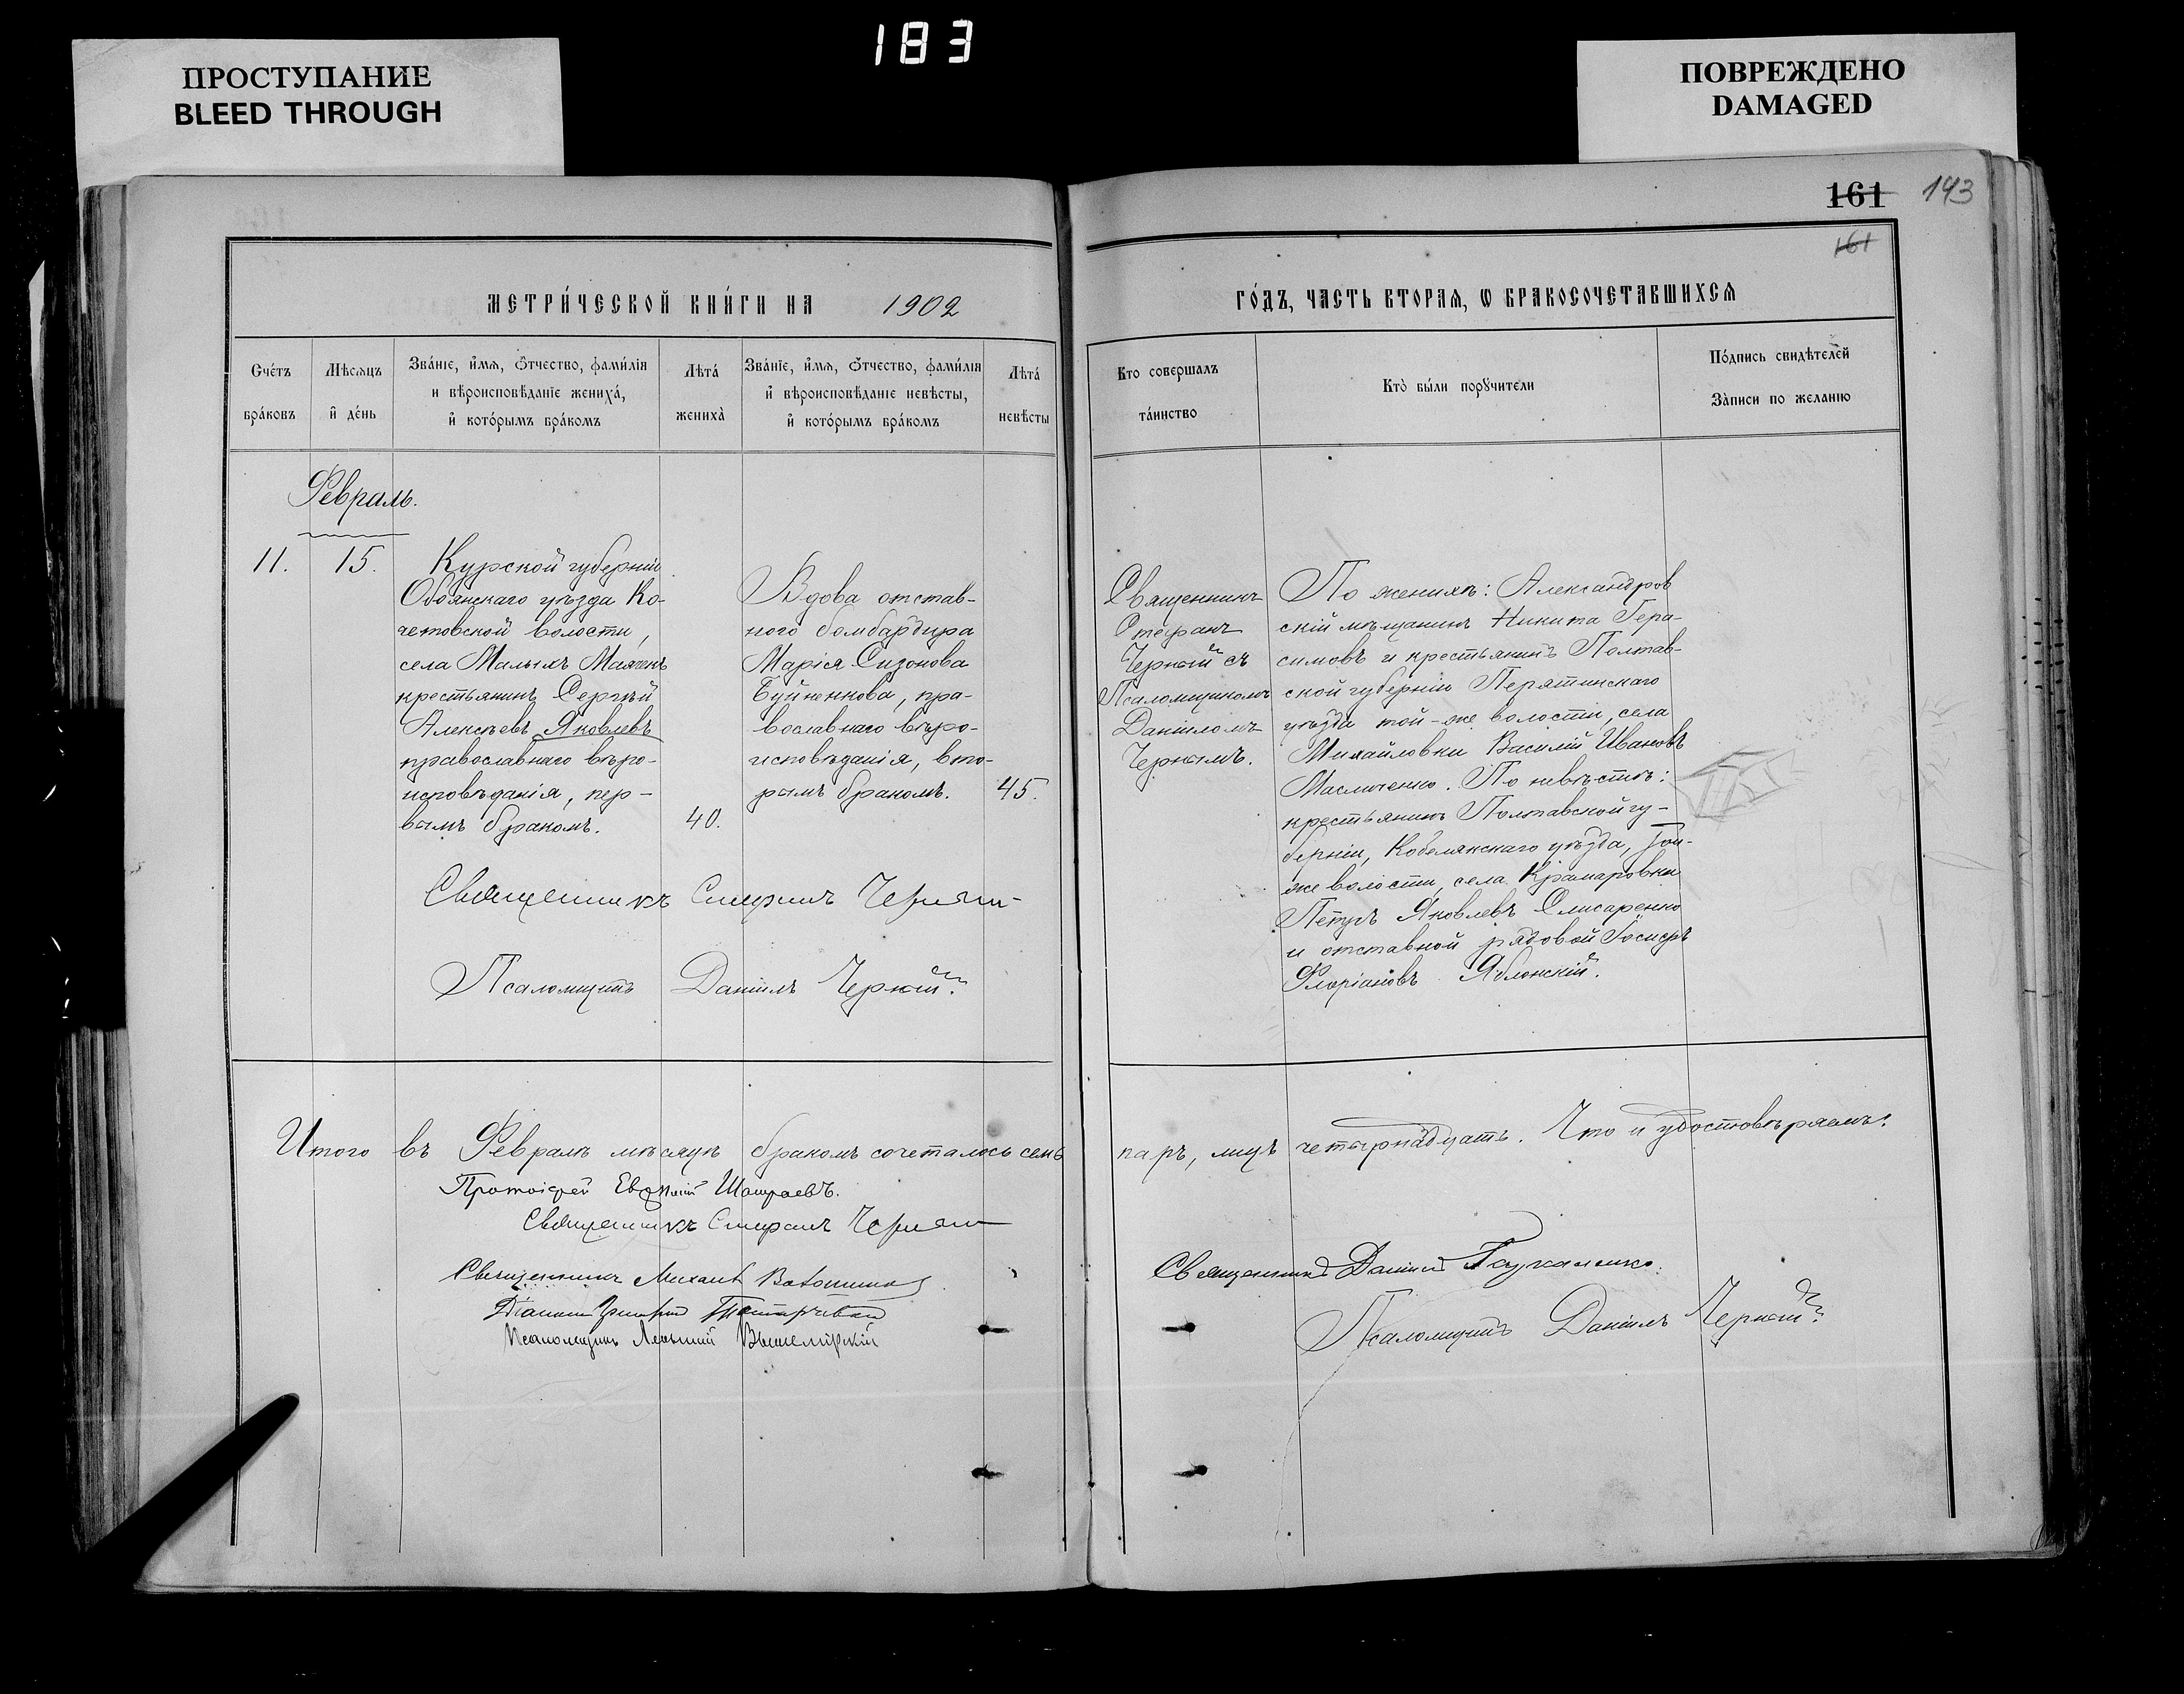 183
ПРОСТУПАНИЕ
BLEED THROUGH
ПОВРЕЖДЕНО
DAMAGED
161 143
161
МЕТРИ́ЧЕСКОЙ КНИ́ГИ НА 1902
ГО́ДЪ, ЧАСТЬ ВТОРАЯ, Ѡ БРАКОСОЧЕТАВШИХСЯ
Сче́тъ
бра́ковъ
Мѣсяцъ
и де́нь
Зва́нїе, и́мя, Ѻтчество, фами́лїя
и вѣроисповѣданїе жениха́,
и кото́рымъ бра́комъ
Лѣта́
жениха̀
Зва́нїе, и́мя, Ѻтчество, фами́лїя
и вѣроисповѣданїе невѣсты,
и кото́рымъ бра́комъ
Лѣта́
невѣсты
Кто совершалъ
та́инство
Кто̀ бы́ли порꙋчители
По́дпись свидѣтелей
За̀писи по желанїю
Февраль.
11.
15.
Курской губерніи
Обоянскаго уѣзда Ко-
четовской волости,
села Малыхъ Маячекъ
крестьянинъ Сергѣй
Алексѣевъ Яковлевъ
православнаго вѣро-
исповѣданія, пер-
вымъ бракомъ.
40.
Вдова отстав-
ного бомбардира
Марія Сизонова
Буйненкова, пра-
вославнаго вѣро-
исповѣданія, вто-
рымъ бракомъ.
45.
Священникъ
Стефанъ
Черный съ
Псаломщикомъ
Даніиломъ
Чернымъ.
По женихѣ: Александров
скій мѣщанинъ Никита Гера-
симовъ и крестьянинъ Полтав-
ской губерніи Перятинскаго
уѣзда той-же волости, села
Михайловки Василій Ивановъ
Масличенко. По невѣстѣ:
крестьянинъ Полтавской гу-
берніи, Кобелякскаго уѣзда, той-
же волости, села Крамаровки
Петръ Яковлевъ Слисаренко
и отставной рядовой Іосифъ
Флоріановъ Яблонскій.
Священникъ Стефанъ Черный
Псаломщикъ Даніилъ Черный
Итого въ Февралѣ мѣсяцѣ бракомъ сочеталось семь
паръ, лицъ четырнадцать. Что и удостовѣряемъ:
Протоіерей Евгеній
Священникъ Стефанъ Черный
Священникъ Михаилъ
Діаконъ
Псаломщикъ
Священникъ Даніилъ
Псаломщикъ Даніилъ Черный